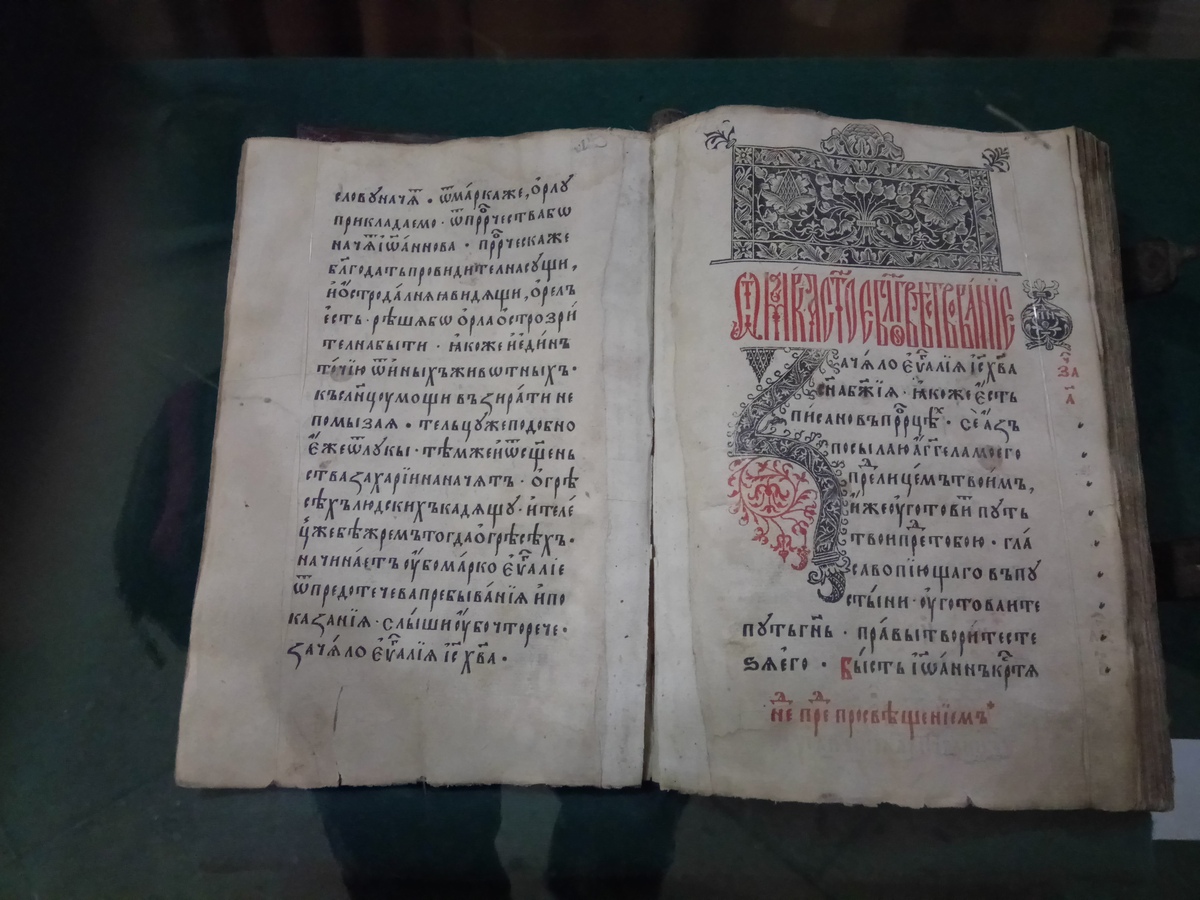 словѹначѧ̑ . ѿма́ркаже, о҆рлѹ
прикладаемо . ѿпрⷪ҇рчествабѡ
начѧ̑і҆ѡа́ннова . прⷪ҇рческаже
бл҃годатьпровидителнасѹщи,
и҆ѻ҆строда́лняꙗвидѧщи, о҆релъ
есть . рѣшѧбѡ о҆рлаѻ҆строзри́
телнабыти . ꙗ҆коже и҆є҆ди́нъ
то́чїю ѿи҆ныхъживѡтныхъ .
къслн҃цѹмощи въꙁира́ти не
помыꙁаѧ . тельцѹжеподобно
є҆́жеѿлѹкы . тѣмжеи҆ѿсщ҃енъ
стваꙁахарїинаначѧтъ . о҆грѣ
сѣхълюдскихъкадѧщѹ . и҆теле́
ц҆жебѣжремътогдао҆грѣсѣхъ .
начинаетъ ѹ҆бома́рко є҆ѵⷢ҇алїе
ѿпредотечевапребыва́нїѧ и҆по
каꙁанїѧ . слы́ши ѹ҆бочторече .
ꙁача́ло є҆ѵⷢ҇алїѧ і҆с҃ хв҃а .
ѿ ма́рка ст҃ое бл҃говѣствова́нїе
ꙁача́ло є҆ѵⷢ҇алїѧ і҆с҃ хв҃а
сн҃а бж҃їѧ . ꙗ҆коже є҆сть
писановъпрⷪ҇рцѣⷯ . се́ а҆ꙁъ
посылаю а҆́гг҃еламоего
преⷣлицемътвоимъ,
и҆́же ѹ҆готови́ⷮ пѹть
твоипреⷣтобою . гла́
съвопїющаго въпѹ
сты́ни . ѹ҆готоваите
пѹтьгн҃ь . пра́вытвори́тесте
ꙁѧ҆его . Бы́сть і҆ѡа́ннъкрⷭ҇тѧ
за҃
а҃
неⷣ преⷣ просвѣщенїемъ